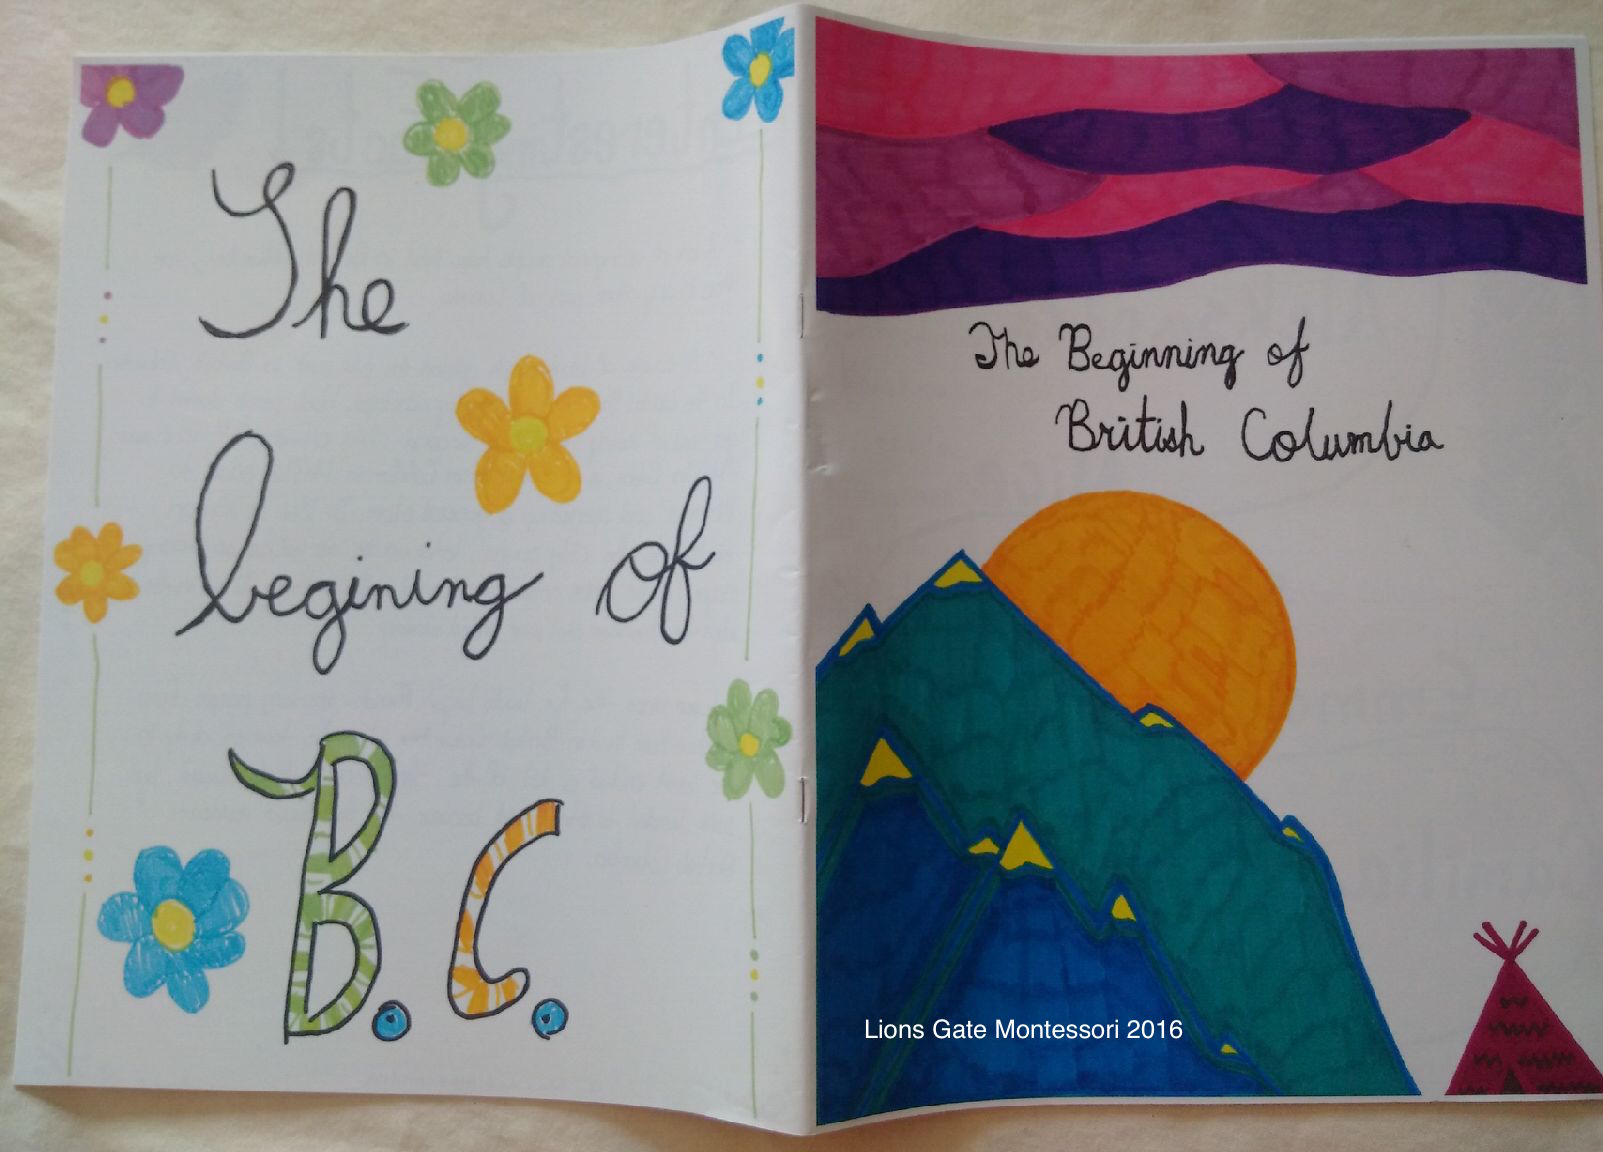 The
begining of
B.C.
The Beginning of
British Columbia
Lions Gate Montessori 2016